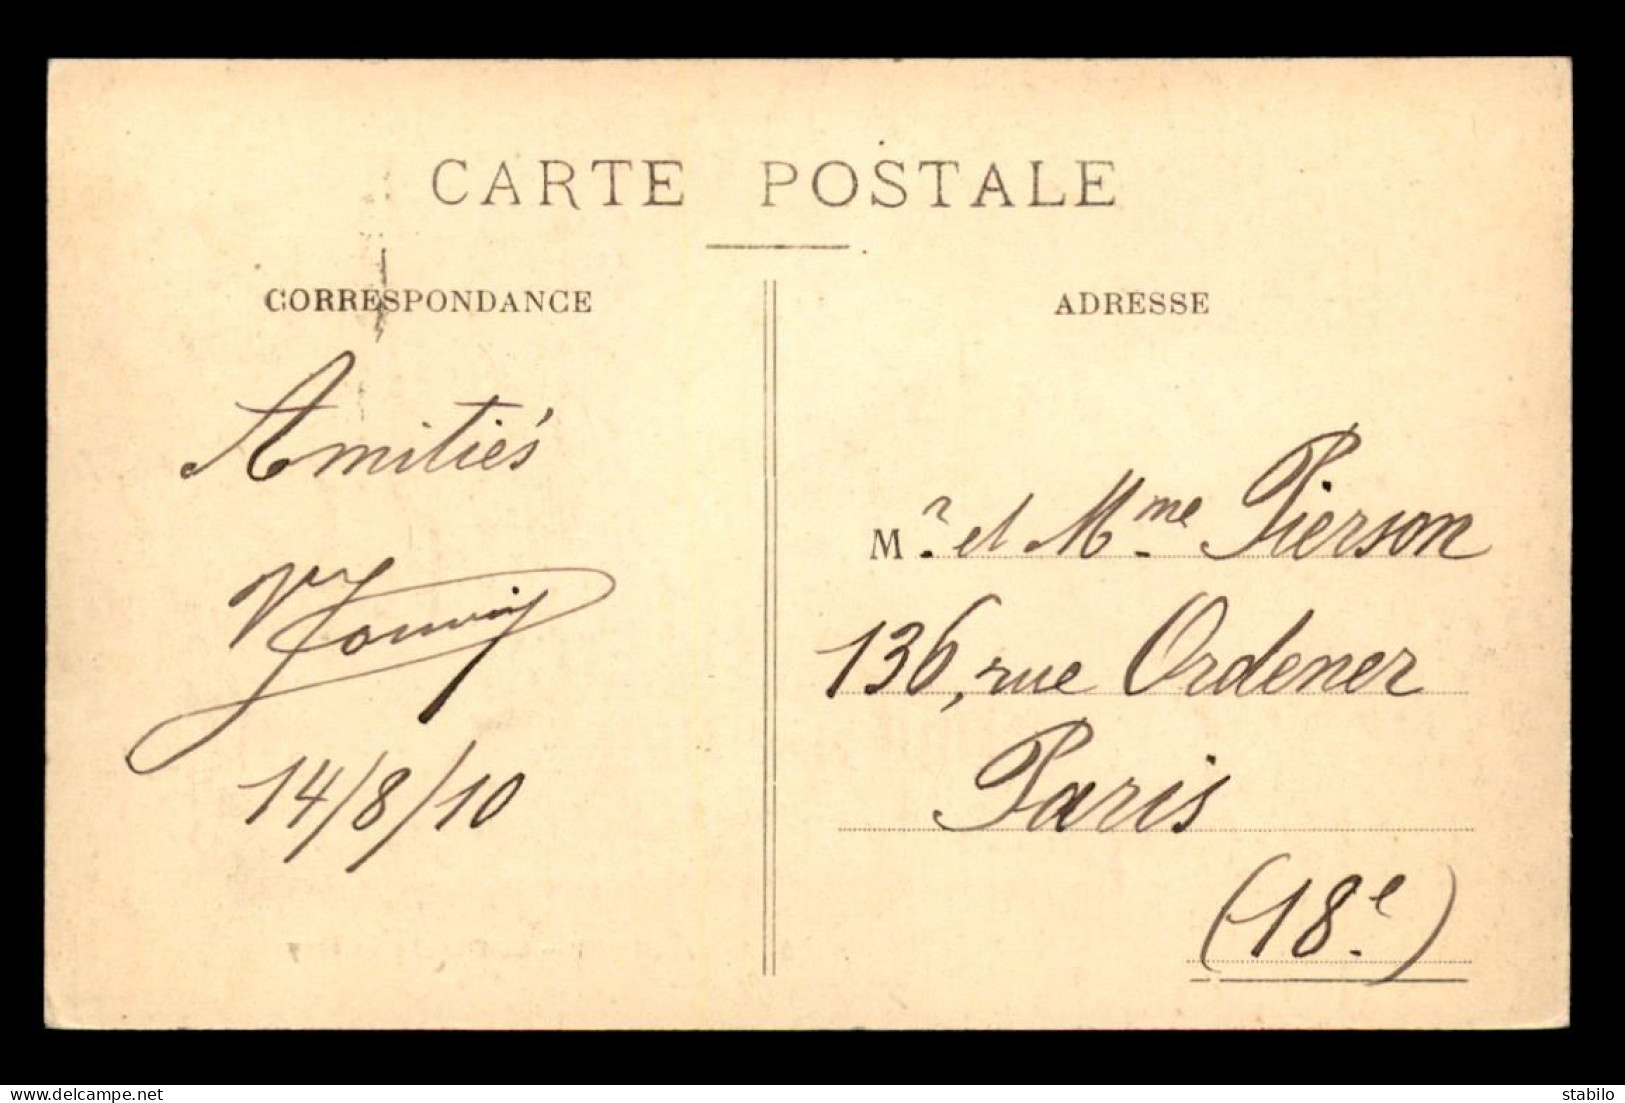 CARTE POSTALE
CORRESPONDANCE
Amitiés
14/8/10
ADRESSE
Mr. et Mme Pierson
136, rue Ordener
Paris
(18e)
www.delcampe.net
stabilo